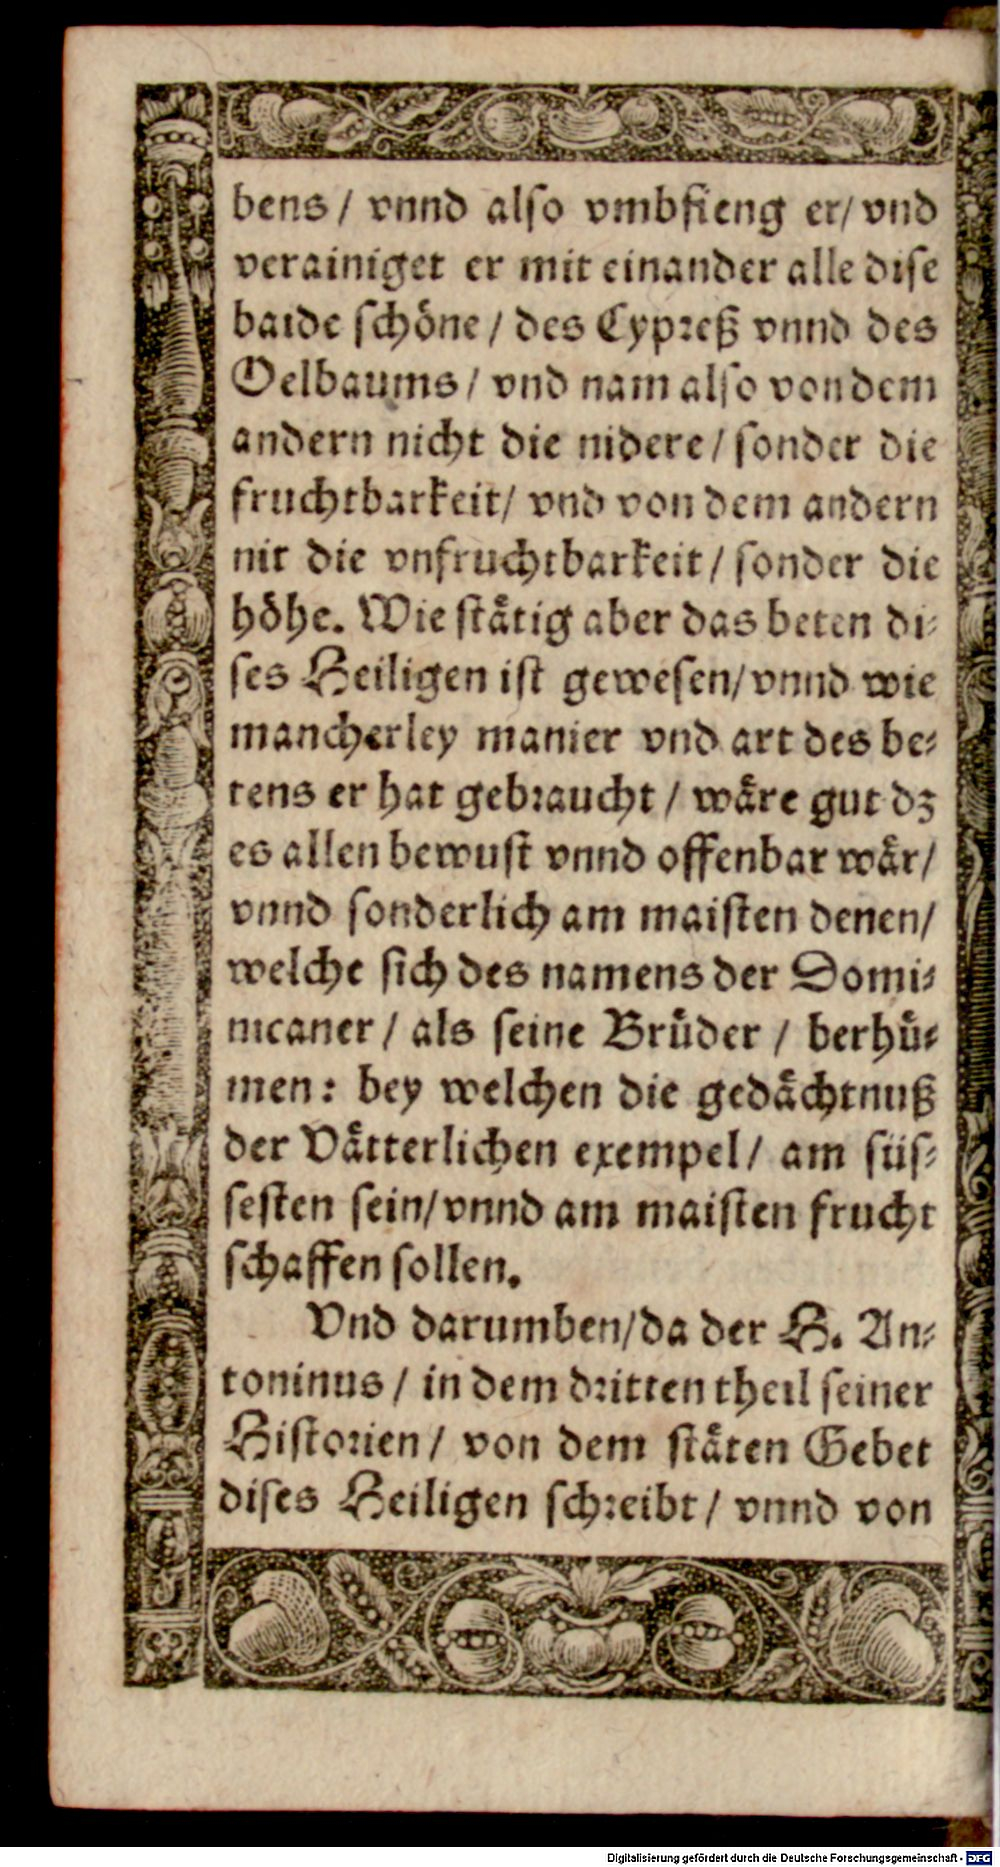 bens / vnnd also vmbfieng er/ vnd
verainiget er mit einander alle dise
baide schöne / des Cypreß vnnd des
Oelbaums / vnd nam also von dem
andern nicht die nidere / sonder die
fruchtbarkeit/ vnd von dem andern
nit die vnfruchtbarkeit / sonder die
höhe. Wie stätig aber das beten di⸗
ses Heiligen ist gewesen/ vnnd wie
mancherley manier vnd art des be⸗
tens er hat gebraucht / wäre gut dz
es allen bewust vnnd offenbar wär/
vnnd sonderlich am maisten denen/
welche sich des namens der Domi⸗
nicaner / als seine Brůder / berhů⸗
men: bey welchen die gedächtnuß
der Vätterlichen exempel/ am süs⸗
sesten sein/ vnnd am maisten frucht
schaffen sollen.
Vnd darumben/ da der H. An⸗
toninus / in dem dritten theil seiner
Historien / von dem stäten Gebet
dises Heiligen schreibt / vnnd von
Digitalisierung gefördert durch die Deutsche Forschungsgemeinschaft - DFG